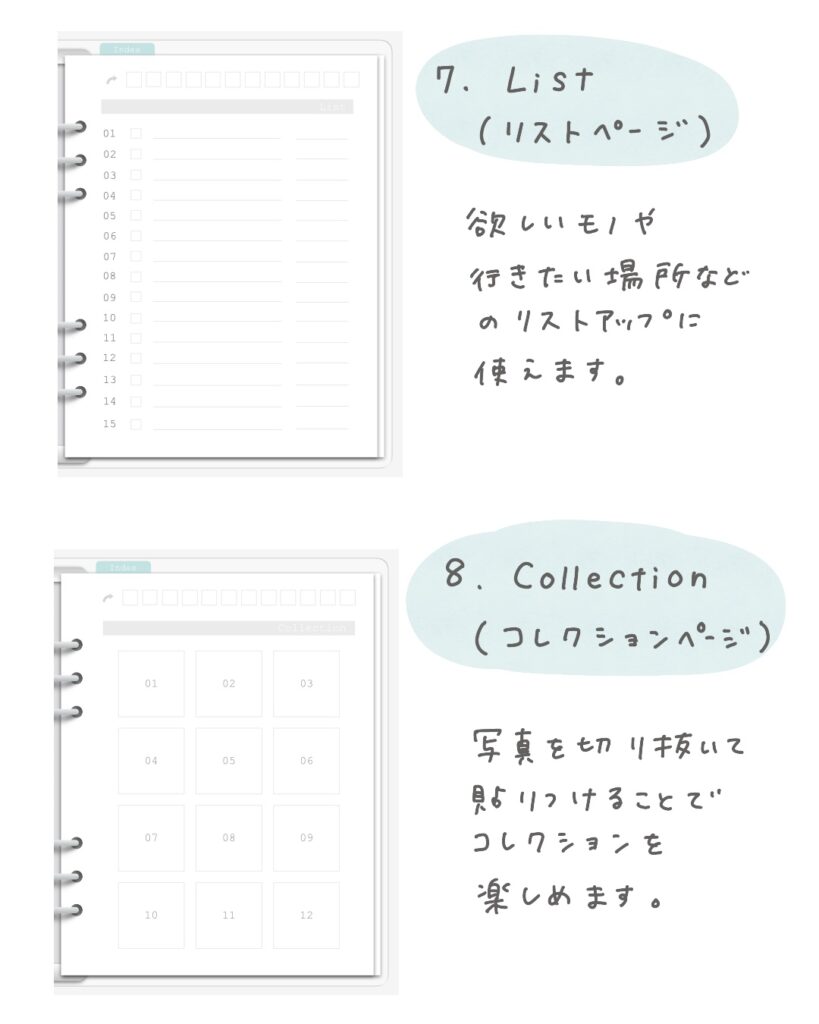 Index
List
01
02
03
04
05
06
07
08
09
10
11
12
13
14
15
7. List
(リストページ)
欲しいモノや
行きたい場所など
のリストアップに
使えます。
Index
Collection
01 02 03
04 05 06
07 08 09
10 11 12
8. Collection
(コレクションページ)
写真を切り抜いて
貼りつけることで
コレクションを
楽しめます。